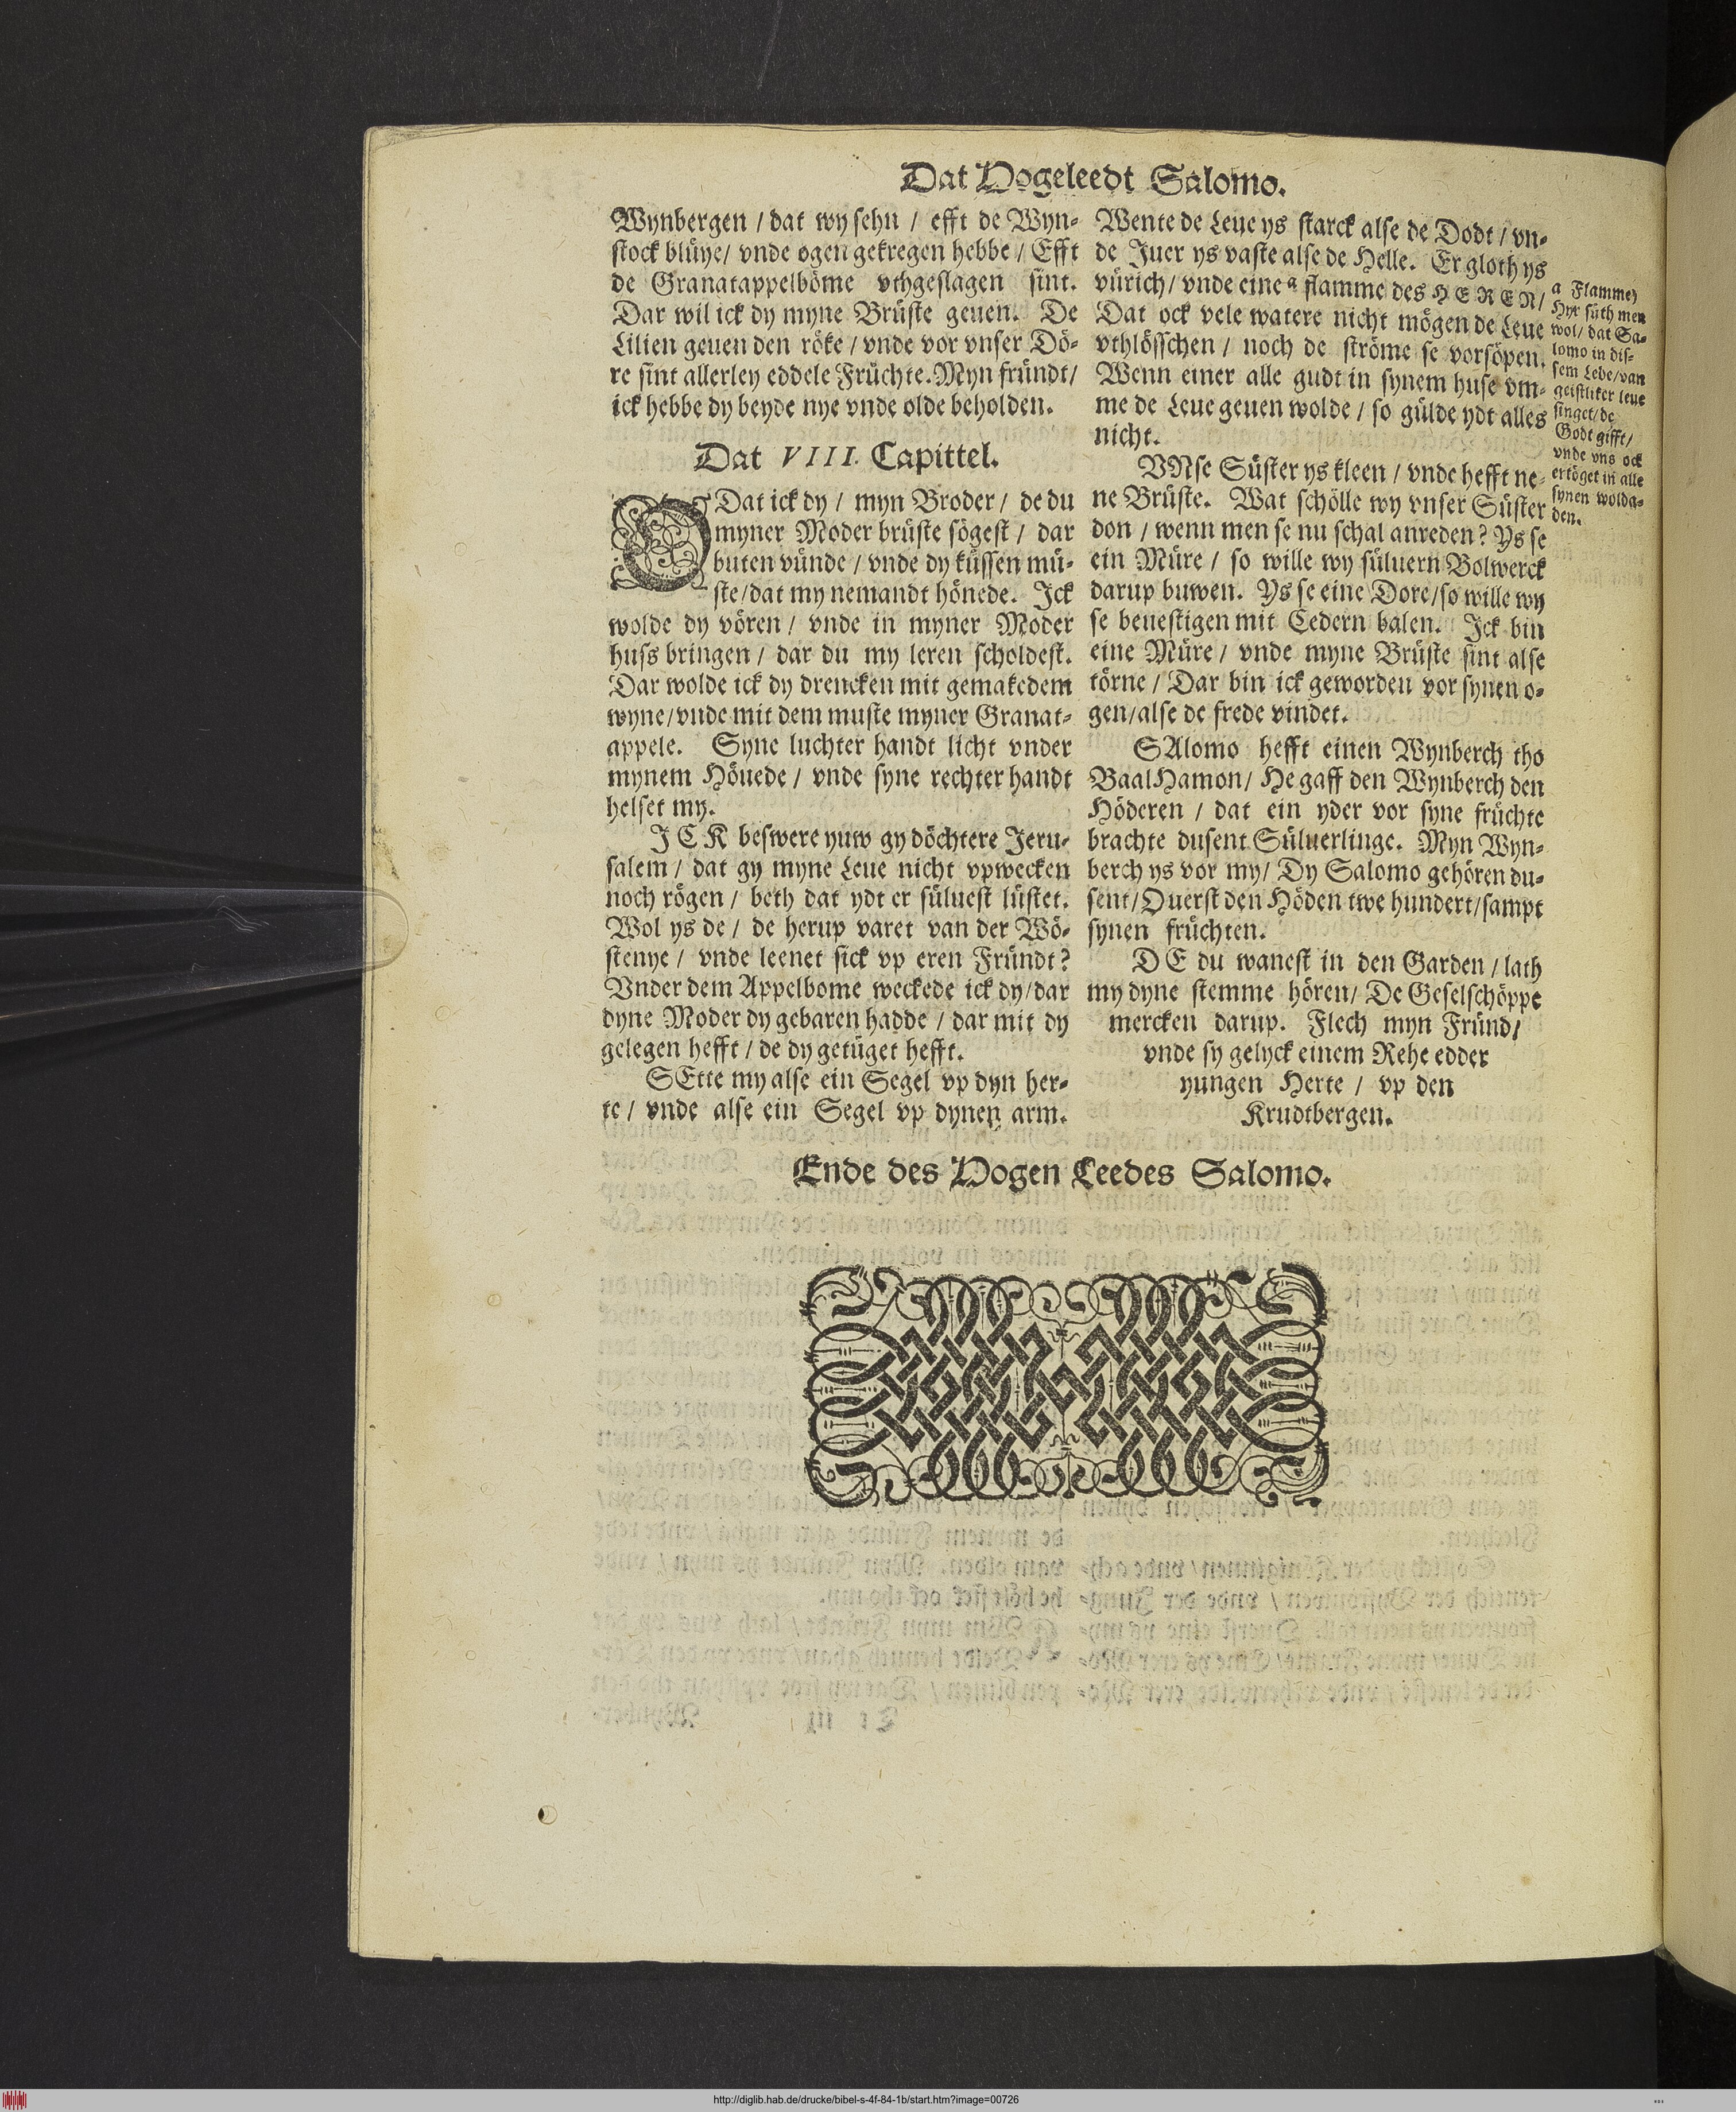 Dat Hogeleedt Salomo.
Wynbergen / dat wy sehn / efft de Wyn-
stock blüye / vnde ogen gekregen hebbe / Efft
de Granatappelböme vthgeslagen sint.
Dar wil ick dy myne Brüste geuen. De
Lilien geuen den röke / vnde vor vnser Dö-
re sint allerley eddele Früchte. Myn fründt /
ick hebbe dy beyde nye vnde olde beholden.
Dat VIII. Capittel.
O Dat ick dy / myn Broder / de du
myner Moder brüste sögest / dar
buten vünde / vnde dy küssen mü-
ste / dat my nemandt hönede. Ick
wolde dy vören / vnde in myner Moder
huss bringen / dar du my leren scholdest.
Dar wolde ick dy drencken mit gemakedem
wyne / vnde mit dem muste myner Granat-
appele. Syne luchter handt licht vnder
mynem Höuede / vnde syne rechter handt
helset my.
ICK beswere yuw gy döchtere Jeru-
salem / dat gy myne Leue nicht vpwecken
noch rögen / beth dat ydt er süluest lüstet.
Wol ys de / de herup varet van der Wö-
stenye / vnde leenet sick vp eren Fründt?
Vnder dem Appelbome weckede ick dy / dar
dyne Moder dy gebaren hadde / dar mit dy
gelegen hefft / de dy getüget hefft.
SEtte my alse ein Segel vp dyn her-
te / vnde alse ein Segel vp dynen arm.
Wente de Leue ys starck alse de Dodt / vn-
de Juer ys vaste alse de Helle. Er gloth ys
vürich / vnde eine a flamme des HEREN /
Dat ock vele watere nicht mögen de Leue
vthlösschen / noch de ströme se vorsöpen.
Wenn einer alle gudt in synem huse vm-
me de Leue geuen wolde / so gülde ydt alles
nicht.
VNse Süster ys kleen / vnde hefft ne-
ne Brüste. Wat schölle wy vnser Süster
don / wenn men se nu schal anreden? Ys se
ein Müre / so wille wy süluern Bolwerck
darup buwen. Ys se eine Dore / so wille wy
se beuestigen mit Cedern balen. Ick bin
eine Müre / vnde myne Brüste sint alse
törne / Dar bin ick geworden vor synen o-
gen / alse de frede vindet.
SAlomo hefft einen Wynberch tho
BaalHamon / He gaff den Wynberch den
Höderen / dat ein yder vor syne früchte
brachte dusent Süluerlinge. Myn Wyn-
berch ys vor my / Dy Salomo gehören du-
sent / Ouerst den Höden twe hundert / sampt
synen früchten.
DE du wanest in den Garden / lath
my dyne stemme hören / De Geselschöppe
mercken darup. Flech myn Fründ /
vnde sy gelyck einem Rehe edder
yungen Herte / vp den
Krudtbergen.
a Flamme)
Hyr süth men
wol / dat Sa-
lomo in dis-
sem Lede / van
geistliker leue
singet / de
Godt gifft /
vnde vns ock
ertöget in alle
synen wolda-
den.
Ende des Hogen Leedes Salomo.
http://diglib.hab.de/drucke/bibel-s-4f-84-1b/start.htm?image=00726